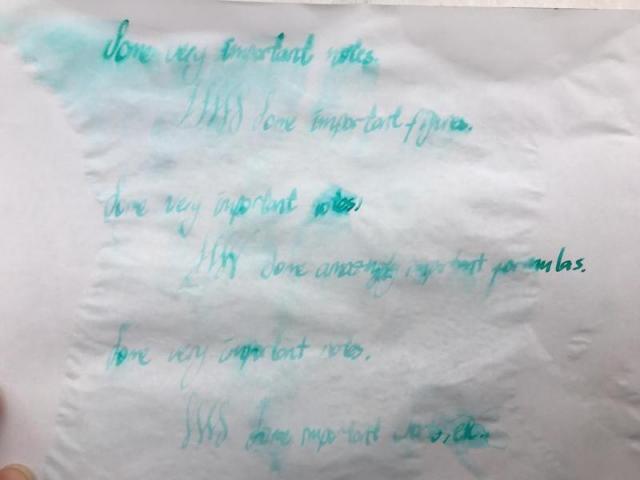 Some very important notes.
SSSSS Some important figures.
Some very important notes,
SSSS Some amazingly important formulas.
Some very important notes.
SSSS Some important